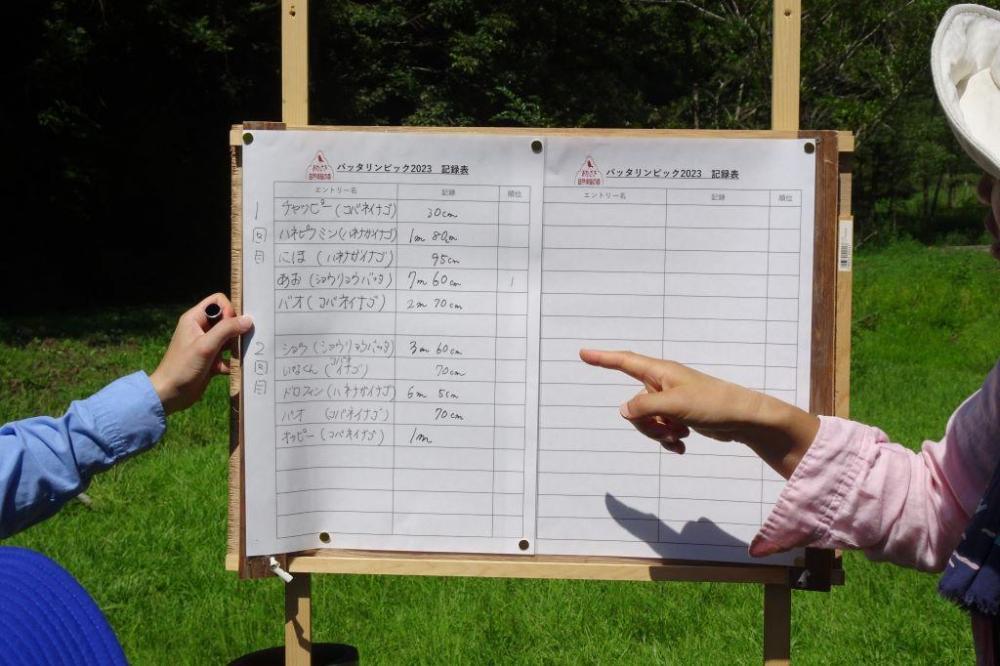 バッタリンピック2023 記録表
エントリー名 記録 順位
1 チャッピー(コバネイナゴ) 30cm
回 ハネピョミン(ハネナガイナゴ) 1m 80cm
目 にほ(ハネナガイナゴ) 95cm
あお(ショウリョウバッタ) 7m 60cm 1
バオ(コバネイナゴ) 2m 70cm
2 ショウ(ショウリョウバッタ) 3m 60cm
回 いなくん(コバネイナゴ) 70cm
目 ドロフィン(ハネナガイナゴ) 6m 5cm
バオ(コバネイナゴ) 70cm
オッピー(コバネイナゴ) 1m
バッタリンピック2023 記録表
エントリー名 記録 順位